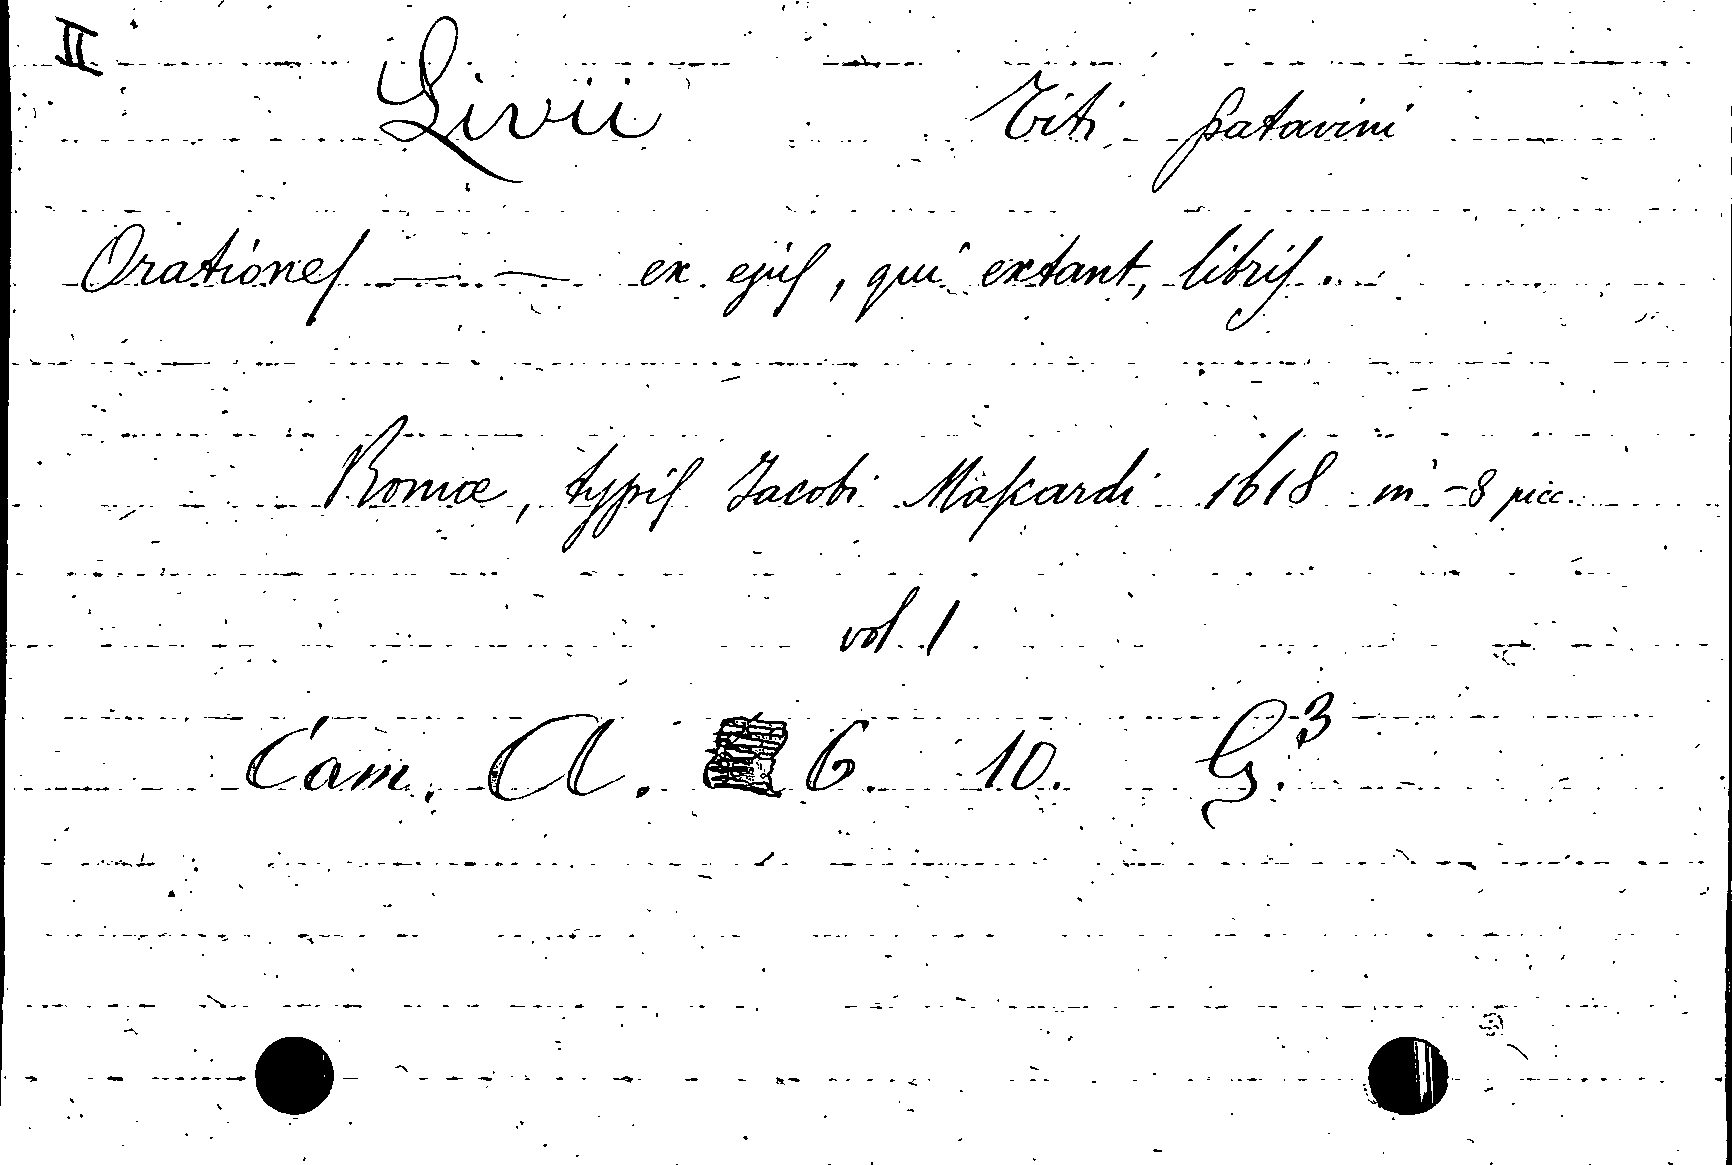 II
Livii Titi patavini
Orationes — — ex ejus, qui extant, libris.
Romæ, typis Jacobi Mascardi 1618 in-8 picc.
vol. 1
Cam. A. 6. 10. G.3